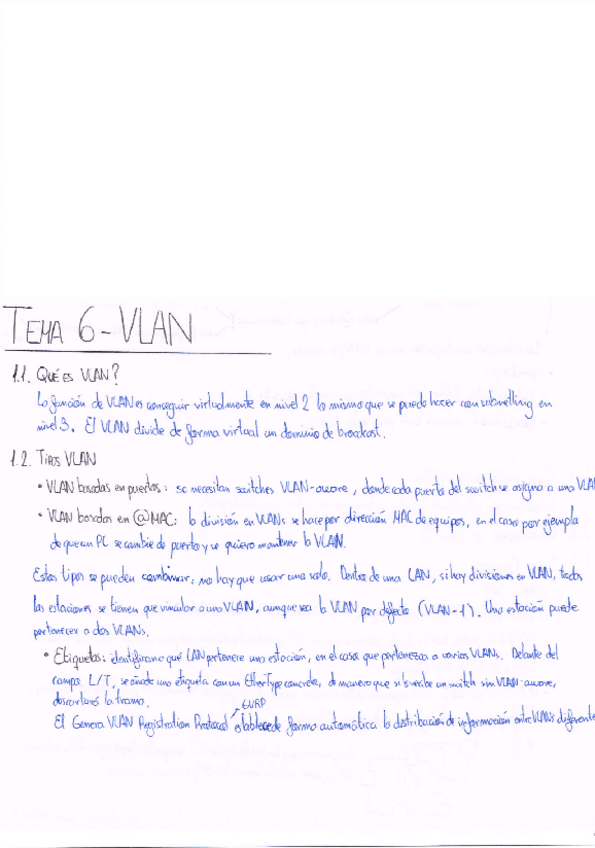 TEMA 6 - VLAN
1.1. QUÉ ES VLAN?
La función de VLAN es conseguir virtualmente en nivel 2 lo mismo que se puede hacer con subnetting en
nivel 3. El VLAN divide de forma virtual un dominio de broadcast.
1.2. TIPOS VLAN
• VLAN basadas en puertos: se necesitan switches VLAN-aware, donde cada puerto del switch se asigna a una VLAN
• VLAN basadas en @MAC: la división en VLANs se hace por dirección MAC de equipos, en el caso por ejemplo
de que un PC se cambie de puerto y se quiera mantener la VLAN.
Estos tipos se pueden combinar, no hay que usar uno solo. Dentro de una LAN, si hay divisiones en VLAN, todas
las estaciones se tienen que vincular a una VLAN, aunque sea la VLAN por defecto (VLAN-1). Una estación puede
pertenecer a dos VLANs.
• Etiquetas: identifican a qué LAN pertenece una estación, en el caso que pertenezca a varias VLANs. Delante del
campo L/T, se añade una etiqueta con un EtherType concreto, de manera que si lo recibe un switch sin VLAN-aware,
descartará la trama.
GVRP
El Genera VLAN Registration Protocol establece de forma automática la distribución de información entre VLANs diferente